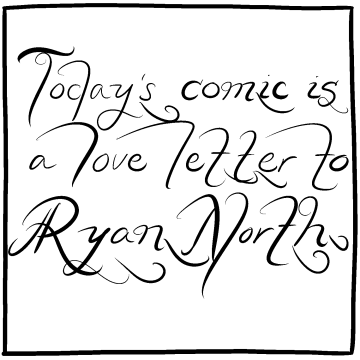 Today's comic is
a love letter to
Ryan North